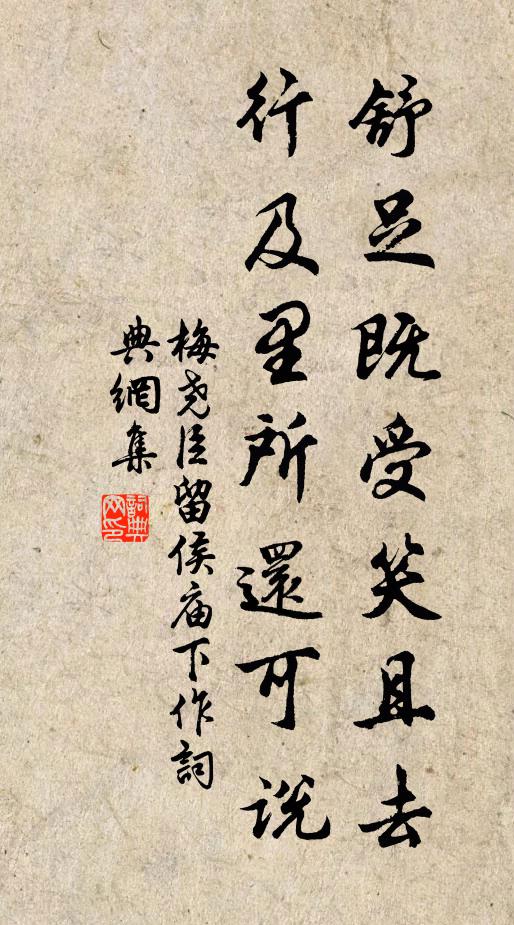 舒足既受笑且去
行及里所還可説
梅尧臣留侯庙下作詞
典網集
詞典网印